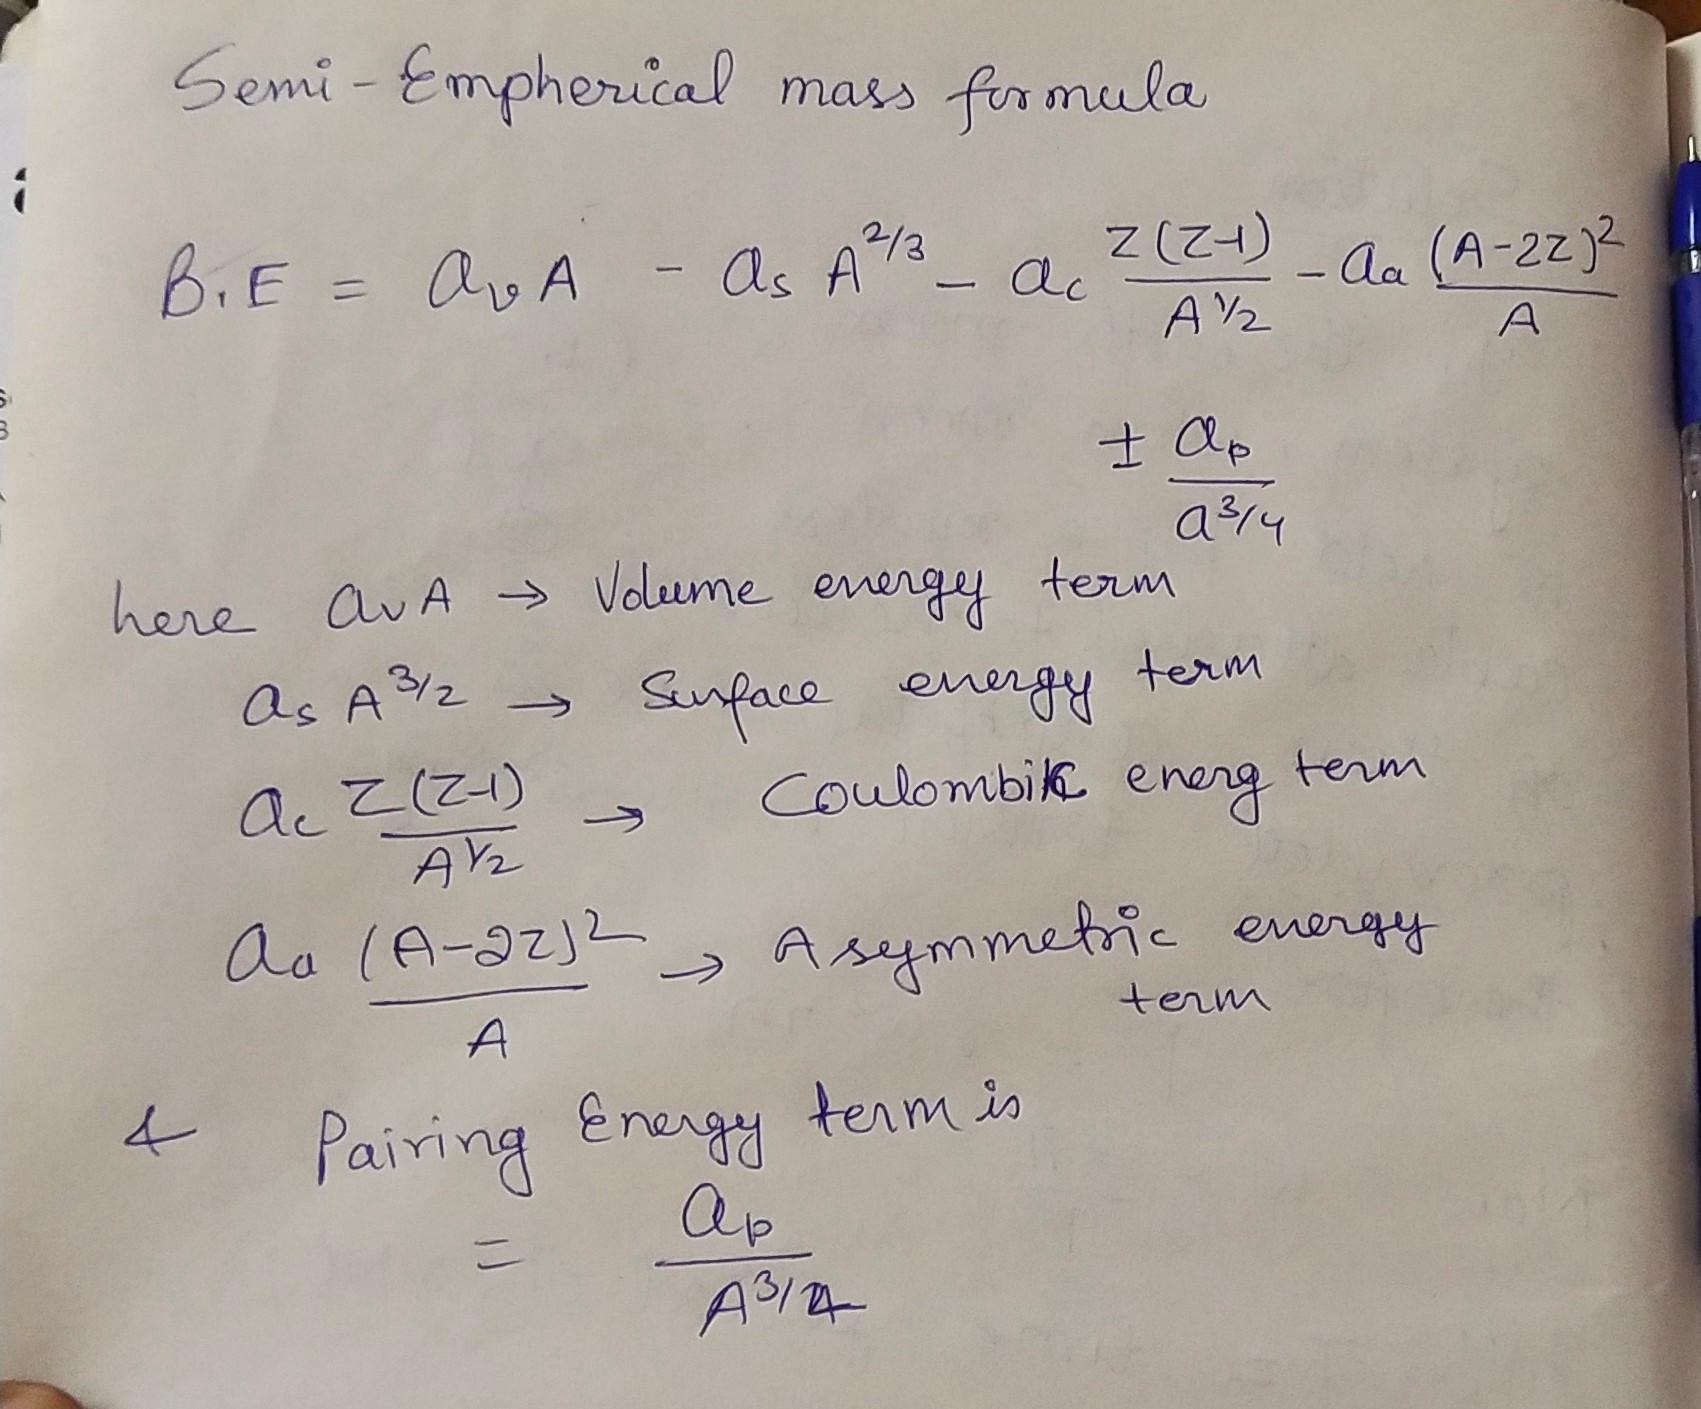 Semi-Empherical mass formula
B.E = avA - as A^2/3 - ac Z(Z-1)/A^1/2 - aa (A-2Z)^2/A
± ap/a^3/4
here avA → Volume energy term
as A^3/2 → Surface energy term
ac Z(Z-1)/A^1/2 → Coulombic energ term
aa (A-2Z)^2/A → Asymmetric energy
term
& Pairing Energy term is
= ap/A^3/4